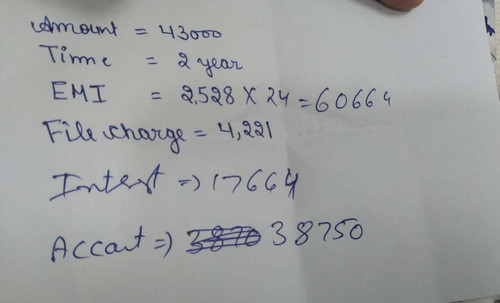 Amount = 43000
Time = 2 year
EMI = 2,528 X 24 = 60664
File charge = 4,221
Interst => 17664
Accant => 38750